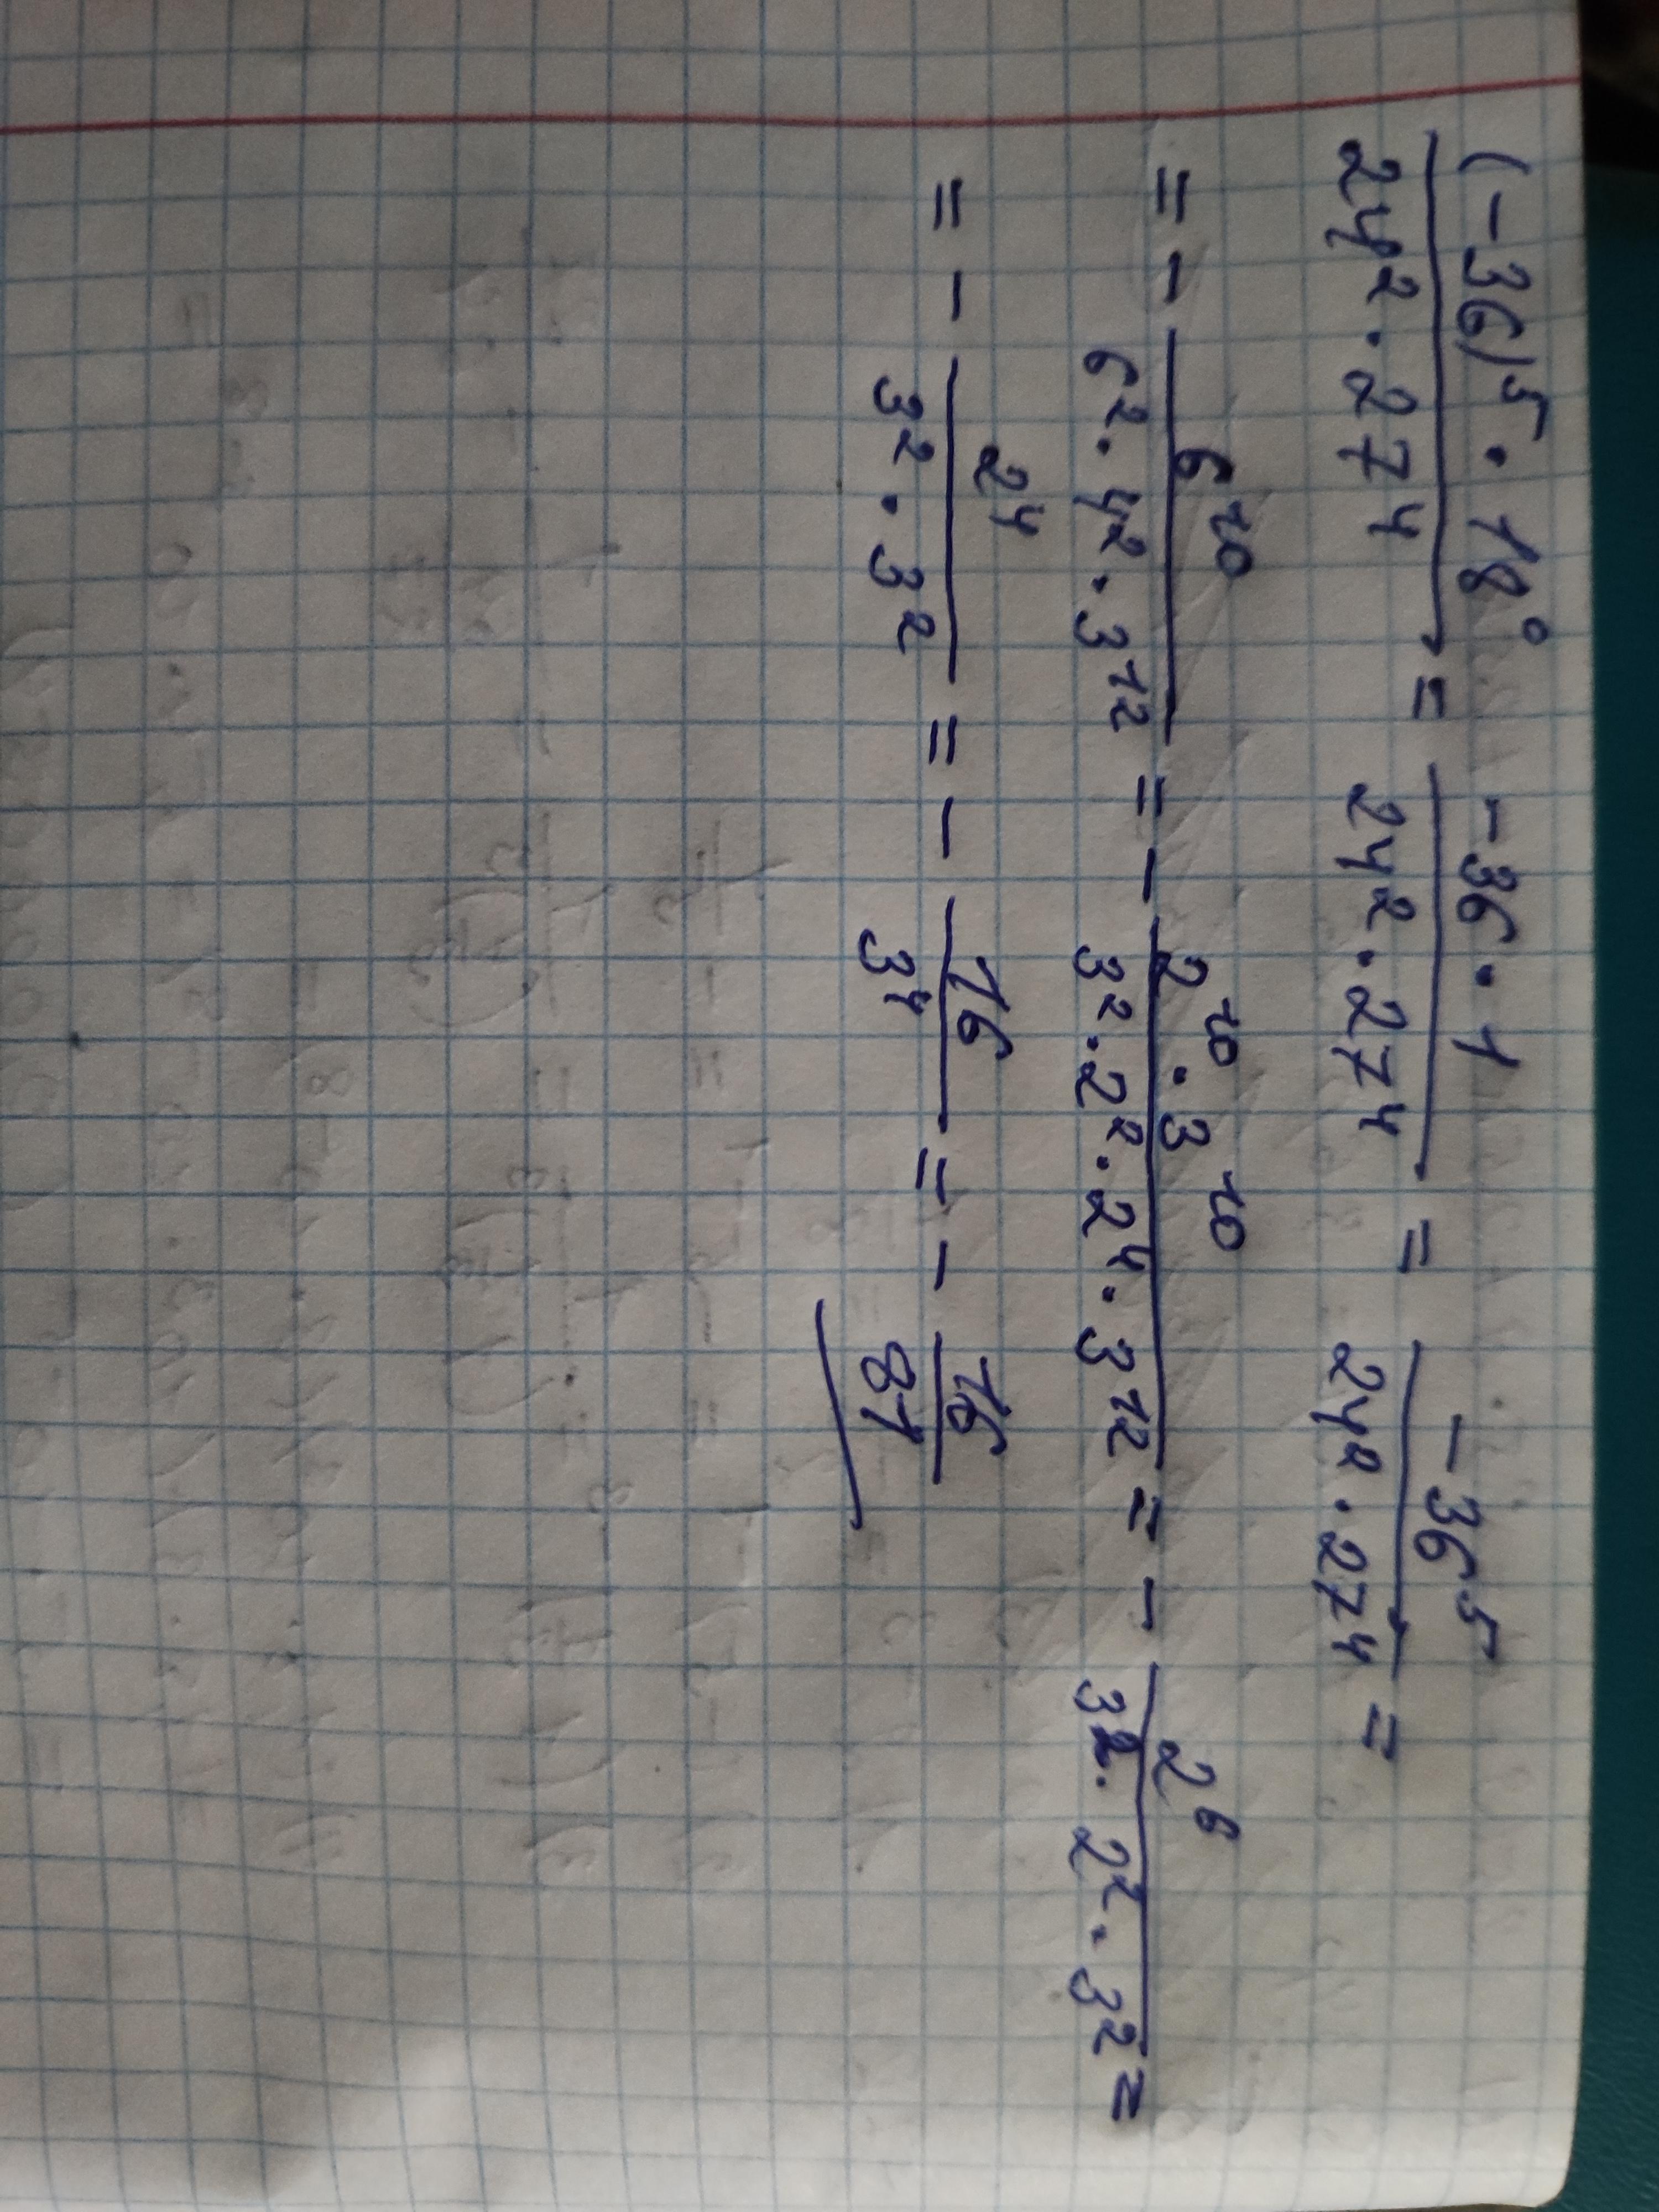 (-36)⁵·18⁰ / 24²·27⁴ = -36·1 / 24²·27⁴ = -36⁵ / 24²·27⁴ =
= - 6¹⁰ / 6²·4²·3¹² = - 2¹⁰·3¹⁰ / 3²·2²·2⁴·3¹² = - 2⁶ / 3²·2²·3² =
= - 2⁴ / 3²·3² = - 16 / 3⁴ = - 16 / 81